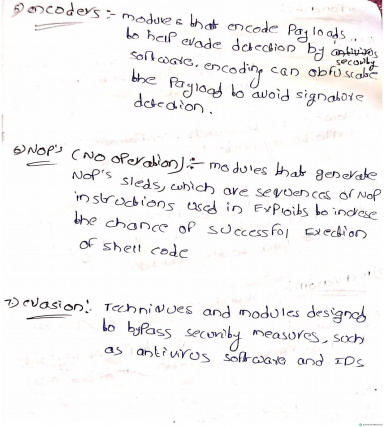 5) encoders :- modules that encode Payloads
to help evade detection by antivirus security
software. encoding can obfuscate
the Payload to avoid signature
detection.
6) NOP's (NO operation) :- modules that generate
NOP's sleds, which are sequences of NOP
instructions used in Exploits to increse
the chance of successful Exection
of shell code
7) evasion : Techniques and modules designed
to bypass security measures, such
as antivirus software and IDs